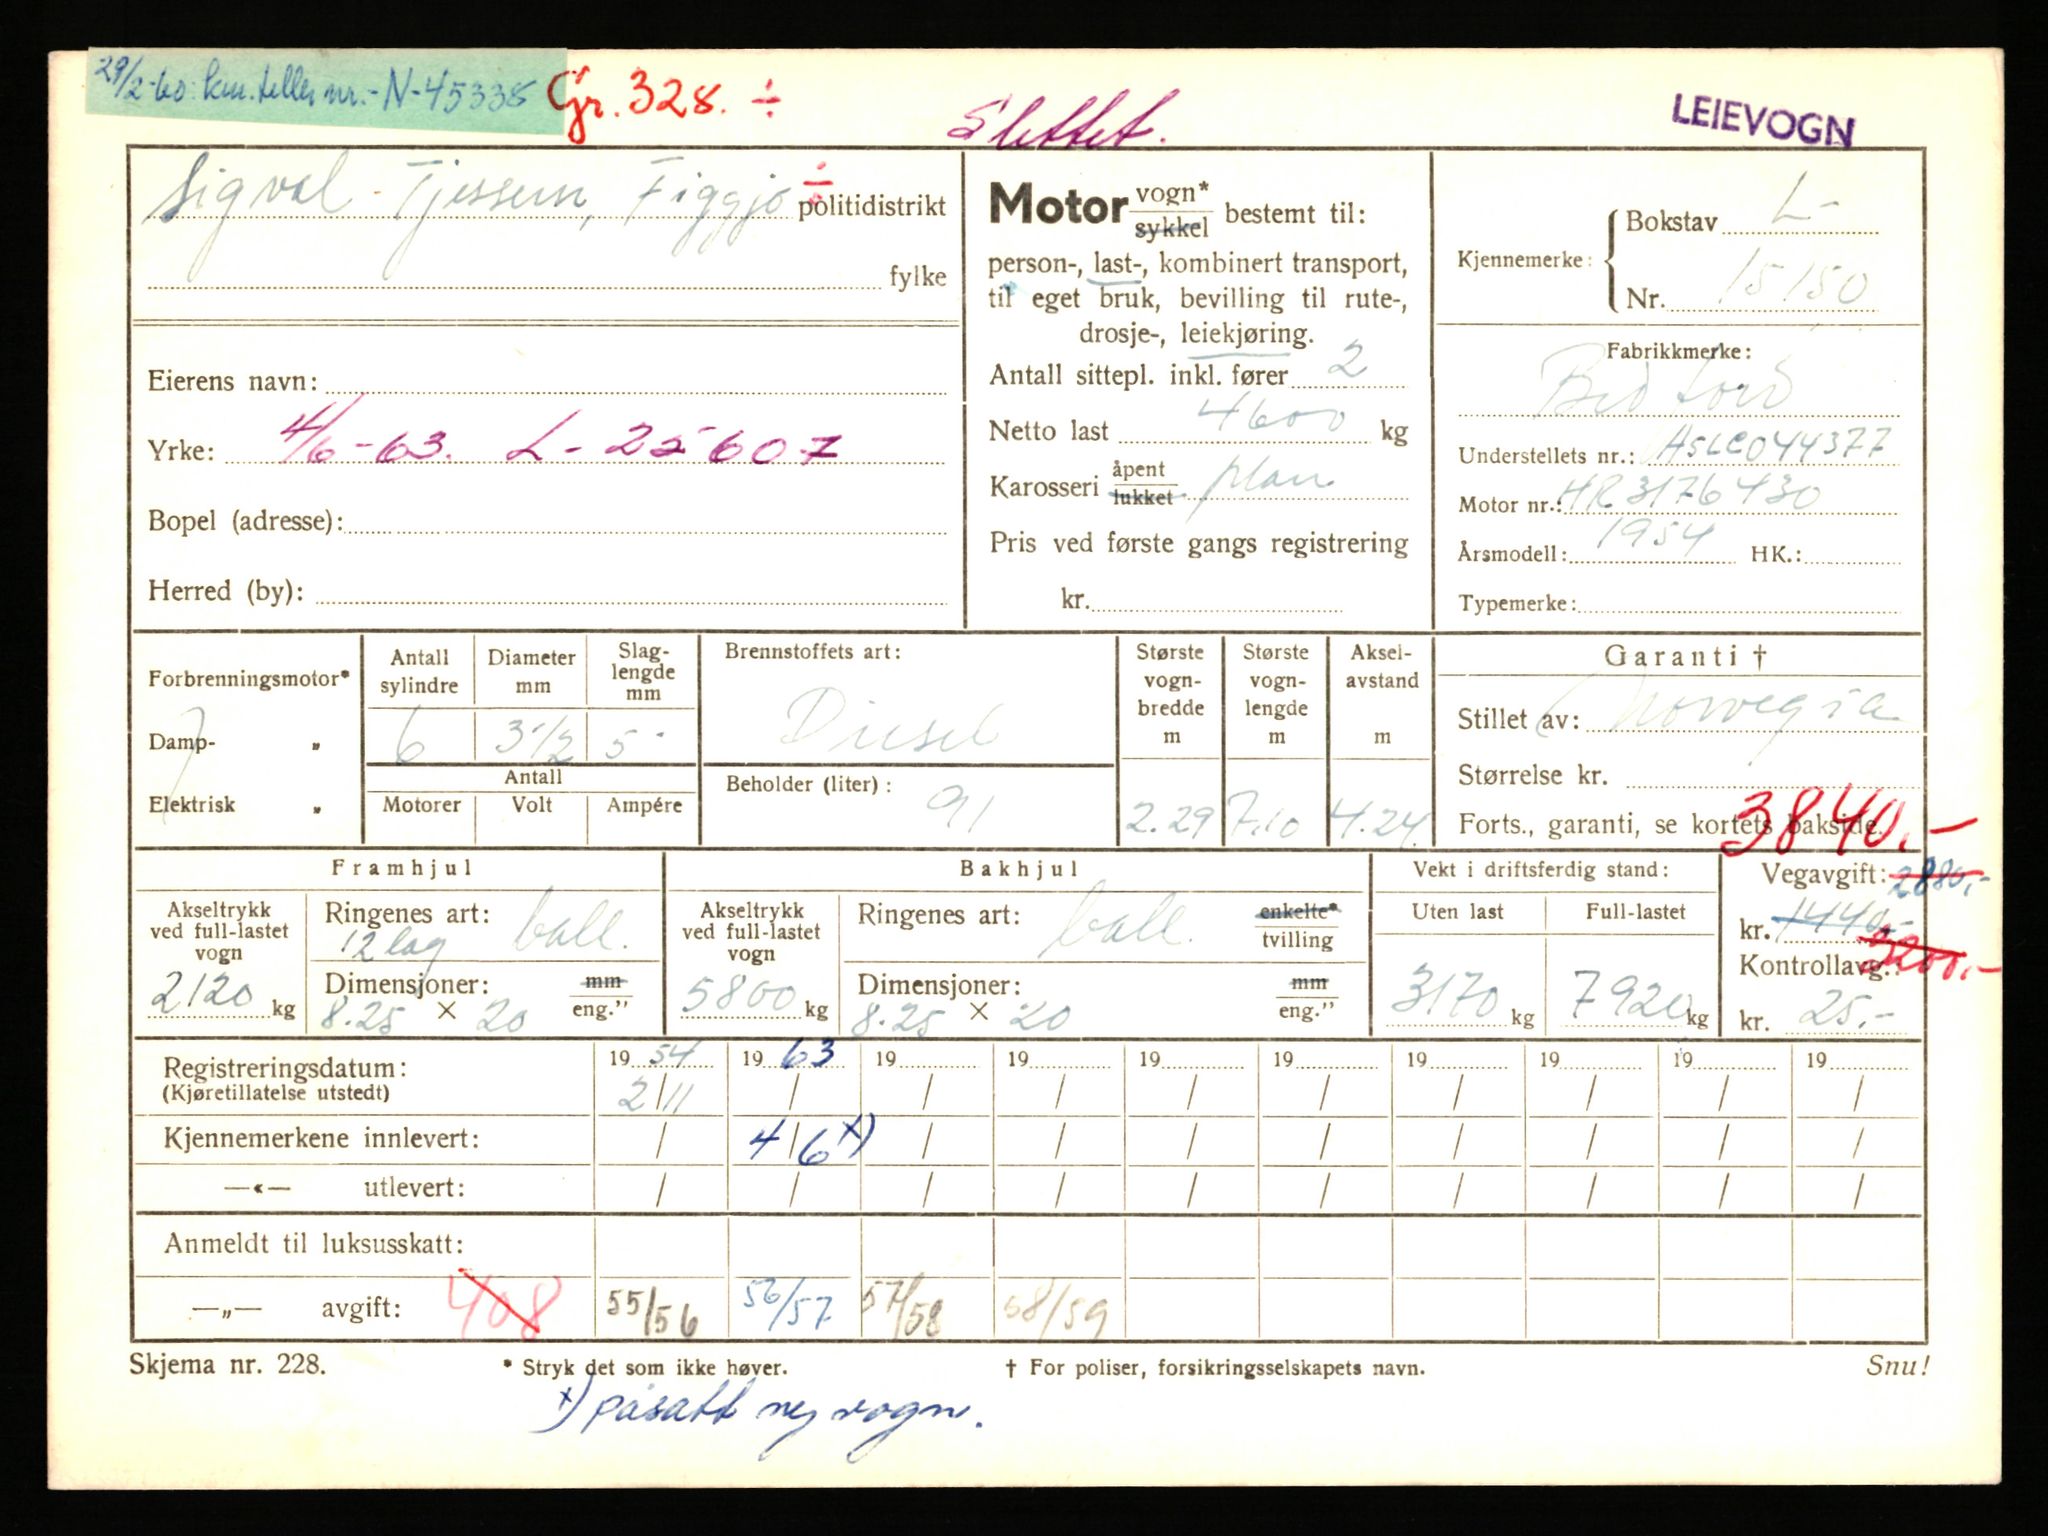 29/2-60: km.teller nr.- N-45338
Gr. 328. ÷
Slettet.
LEIEVOGN
Sigval Tjessem, Figgjo ÷ politidistrikt
fylke
Eierens navn:
Yrke: 4/6-63. L-25607
Bopel (adresse):
Herred (by):
Motor vogn* sykkel bestemt til:
person-, last-, kombinert transport,
til eget bruk, bevilling til rute-,
drosje-, leiekjøring.
Antall sittepl. inkl. fører 2
Netto last 4600 kg
Karosseri åpent lukket plan
Pris ved første gangs registrering
kr.
Kjennemerke: Bokstav L-
Nr. 15150
Fabrikkmerke:
Bedford
Understellets nr.: ASLC044377
Motor nr.: HR3176430
Årsmodell: 1954 HK.:
Typemerke:
Forbrenningsmotor*
Damp- „
Elektrisk „
Antall sylindre 6
Diameter mm 3 1/2
Slag-lengde mm 5
Antall
Motorer Volt Ampére
Brennstoffets art:
Diesel
Beholder (liter): 91
Største vogn-bredde m 2.29
Største vogn-lengde m 7.10
Aksel-avstand m 4.24
Garanti †
Stillet av: Norwegia
Størrelse kr.
Forts., garanti, se kortets bakside.
3840.-
Framhjul
Akseltrykk ved full-lastet vogn 2120 kg
Ringenes art: 12 lag ball.
Dimensjoner: 8.25 × 20 mm eng."
Bakhjul
Akseltrykk ved full-lastet vogn 5800 kg
Ringenes art: ball. enkelte* tvilling
Dimensjoner: 8.25 × 20 mm eng."
Vekt i driftsferdig stand:
Uten last Full-lastet
3170 kg 7920 kg
Vegavgift: 2880,-
kr. 1440,-
3200,-
Kontrollavg.:
kr. 25.-
Registreringsdatum: 19 54 19 63 19 19 19 19 19 19 19 19
(Kjøretillatelse utstedt) 2/11 / / / / / / / / /
Kjennemerkene innlevert: / 4/6 x) / / / / / / / /
—«— utlevert: / / / / / / / / / /
Anmeldt til luksusskatt:
—„— avgift: 408 55/56 56/57 57/58 58/59
Skjema nr. 228.
* Stryk det som ikke høver.
† For poliser, forsikringsselskapets navn.
Snu!
x) påsatt ny vogn.